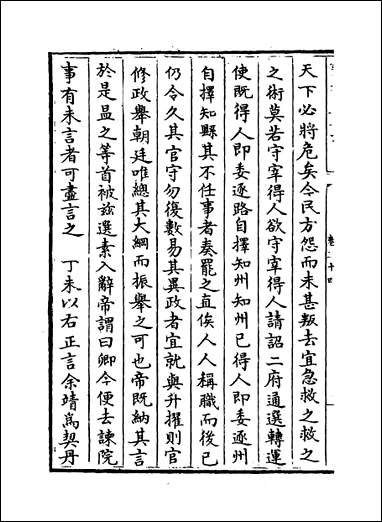 天下必將危矣今民方怨而未甚叛去宜急救之救之
之術莫若守宰得人欲守宰得人請詔二府通選轉運
使既得人即委逐路自擇知州知州已得人即委逐州
自擇知縣其不任事者奏罷之直俟人人稱職而後已
仍令久其官守勿復數易其異政者宜就與升擢則官
修政舉朝廷唯總其大綱而振舉之可也帝既納其言
於是昷之等首被兹選素入辭帝謂曰卿今便去諫院
事有未言者可盡言之 丁未以右正言余靖為契丹
卷二十四